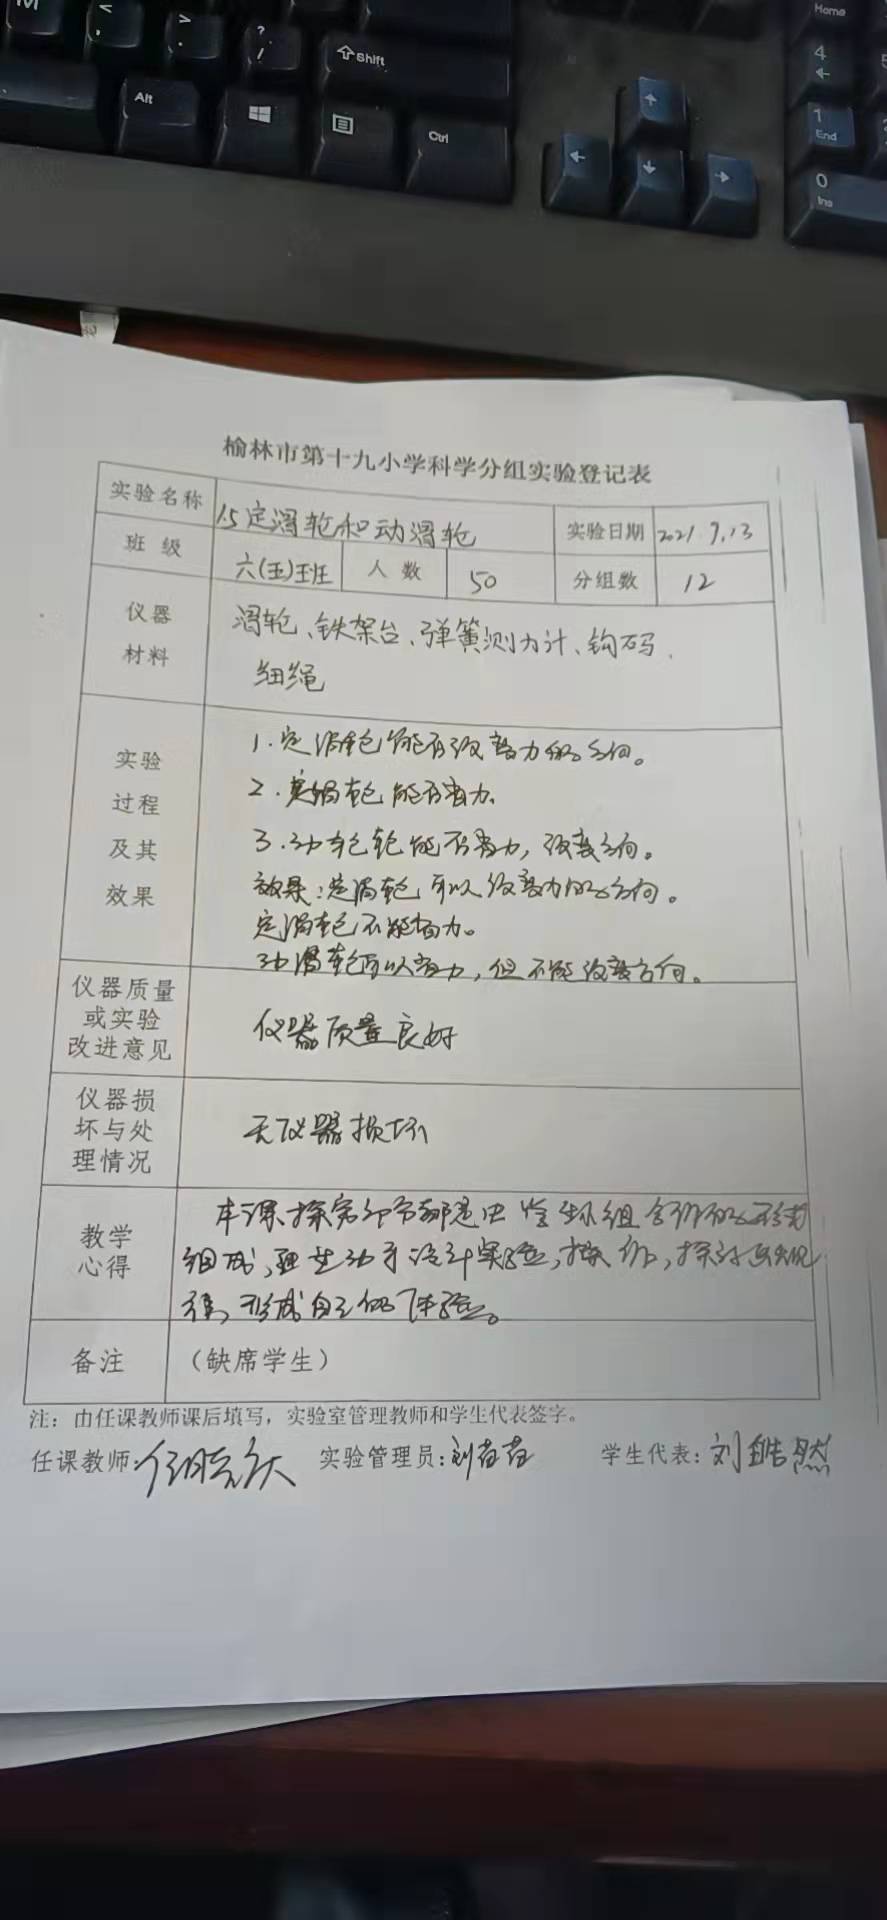 Home
Shift
Alt
Ctrl
4
1
End
0
Ins
榆林市第十九小学科学分组实验登记表
实验名称 1.5定滑轮和动滑轮 实验日期 2021.9.13
班 级 六(五)班 人 数 50 分组数 12
仪器 滑轮、铁架台、弹簧测力计、钩码、
材料 细绳
实验
过程
及其
效果
1.定滑轮能否改变力的方向。
2.定滑轮能否省力。
3.动轮能否省力,改变方向。
效果:定滑轮可以改变力的方向。
定滑轮不能省力。
动滑轮可以省力,但不能改变方向。
仪器质量
或实验
改进意见
仪器质量良好
仪器损
坏与处
理情况
无仪器损坏
教学
心得
本课探究环节都是由学生小组合作的形式
组成,学生动手设计实验,操作,探讨
形成自己的体验。
备注 (缺席学生)
注:由任课教师课后填写,实验室管理教师和学生代表签字。
任课教师: 实验管理员:刘苗苗 学生代表:刘皓然